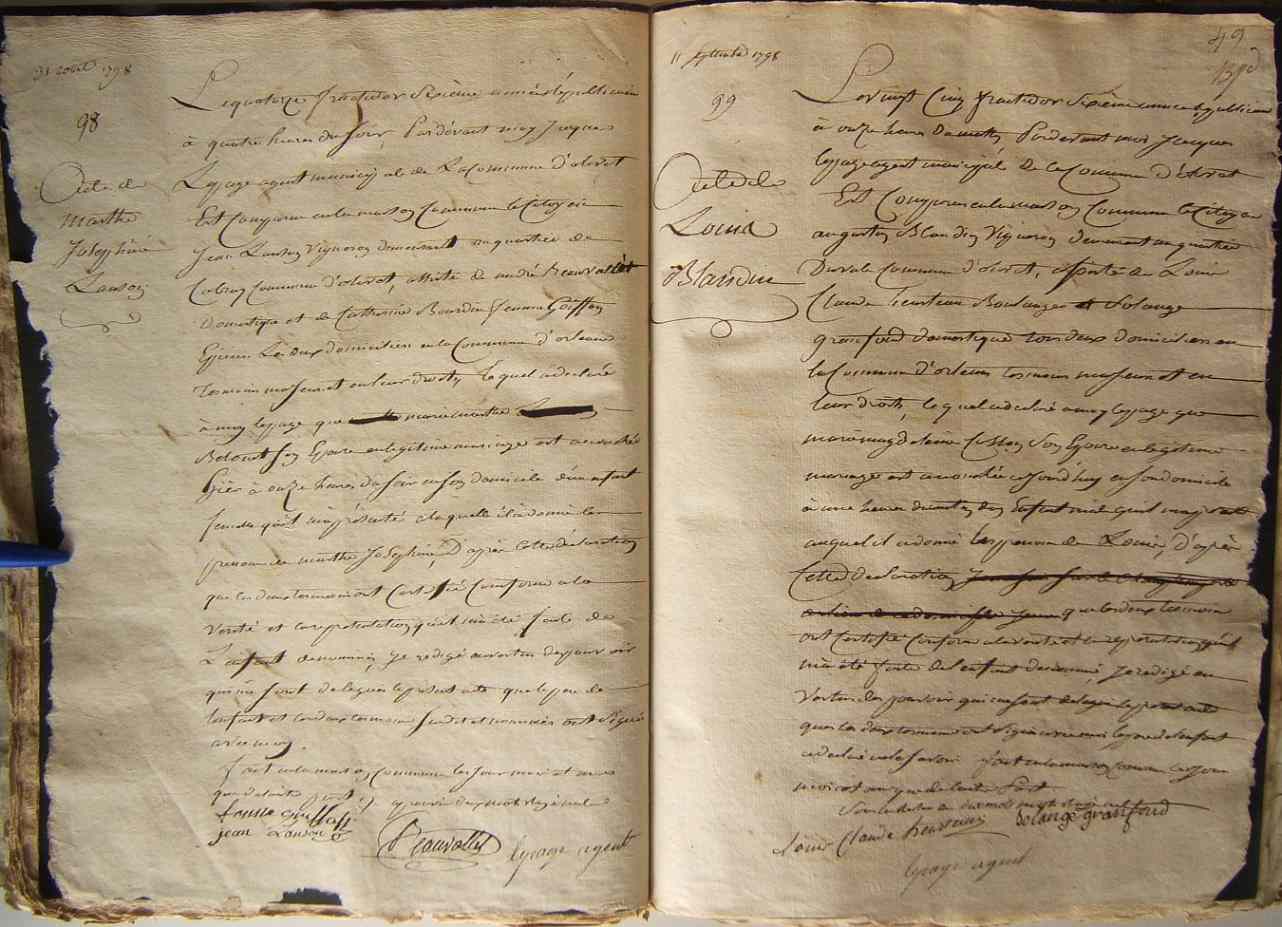 31 aout 1798
98
Acte de
Marthe
Josephine
Lanson
Le quatorze fructidor sixième année républicaine
à quatre heures du soir, Pardevant moy Jacques
Lepage agent municipal de La Commune d'olivet
Est Comparu en la maison Commune le Citoyen
Jean Lanson Vigneron demeurant au quartier de
Commune d'olivet, assisté de andré Beauvallet
Domestique et de Catherine Bourdin femme Goiffon
Les deux domiciliés en la Commune d'orleans
temoins majeurs et en leur droits, lequel a déclaré
à moy lepage que marie marthe
son Epouse en legitime mariage est accouchée
hier à onze heures du soir en son domicile d'un enfant
femelle qu'il m'a présenté a laquelle il a donné les
prenom de marthe Josephine, d'après cette declaration
que les deux temoins ont Certifié Conforme a la
Verité et la représentation qui m'a été faite de
L'enfant denommé, Je rédigé en vertu des pouvoir
qui me sont delegués le présent acte que le pere de
l'enfant et les deux temoins susdit et nommés ont signés
avec moy.
fait en la maison Commune les jour mois et an
que dessus
femme Goiffon
jean Lanson
Beauvallet
lepage agent
11 septembre 1798
49
99
Acte de
Louis
Blandin
Le vingt Cinq fructidor Sixième année républicaine
à onze heures du matin, Pardevant moi Jacques
lepage agent municipal de la Commune d'olivet
Est Comparu en la maison Commune le Citoyen
augustin Blandin Vigneron demeurant au quartier
Duval Commune d'olivet, assisté de Louis
Claude heurteau Boulanger et Solange
granfond domestique tous deux domiciliés en
la Commune d'orleans temoins majeurs et en
leur droits, lequel a déclaré a moy lepage que
marie magdelaine son Epouse en legitime
mariage est accouchée aujourd'huy en son domicile
à une heure du matin d'un Enfant male qu'il m'a présenté
auquel il a donné les prenom de Louis, d'après
Cette declaration
que les deux temoins
ont Certifié Conforme a la verité et la représentation qui
m'a été faite de l'enfant denommé, Je rédigé en
Vertu des pouvoir qui me sont delegué le présent acte
que les deux temoins ont signé avec moi le pere de l'enfant
a declaré ne le savoir fait en la maison Commune les jour
mois et an que de l'autre Part
Louis Claude heurteau
Solange granfond
lepage agent